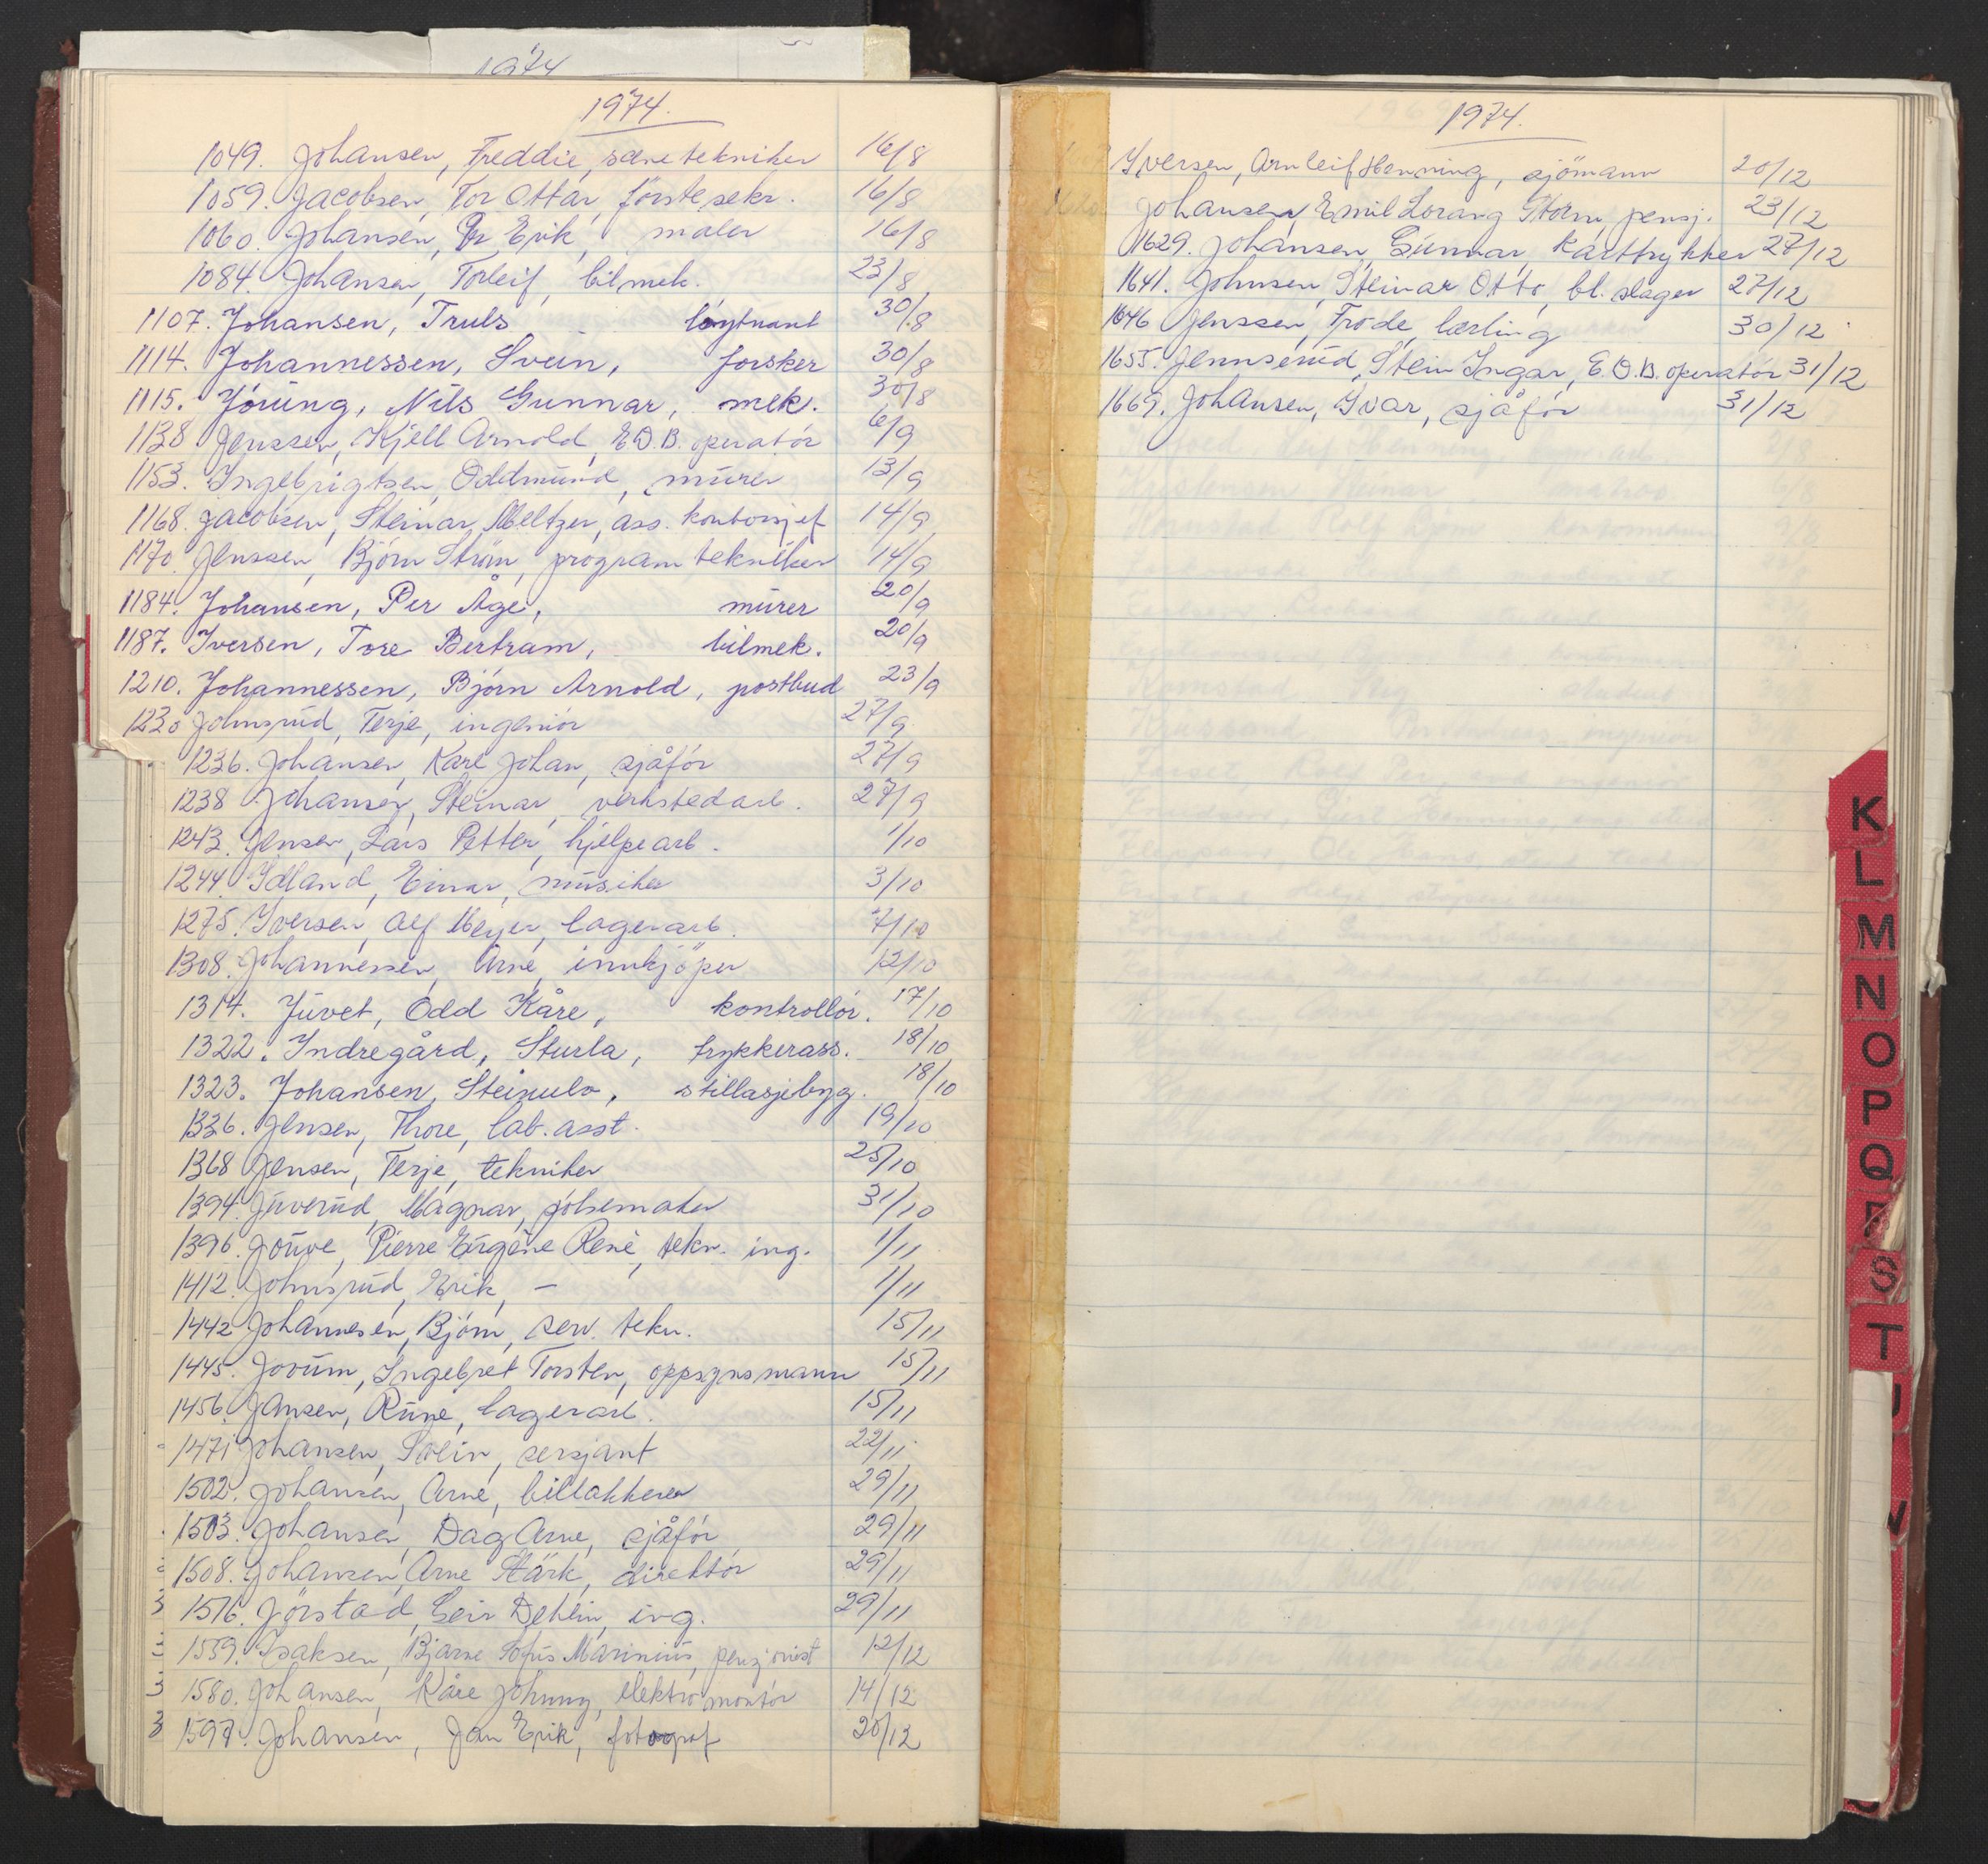 1974
1974.
1049. Johansen, Freddie, scenetekniker 16/8
1059. Jacobsen, Tor Ottar, förstesekr. 16/8
1060. Johansen, Per Erik, maler 16/8
1084. Johansen, Torleif, bilmek. 23/8
1107. Johansen, Truls löytnant 30/8
1114. Johannessen, Svein, forsker 30/8
1115. Jörung, Nils Gunnar, mek. 30/8
1138 Jenssen, Kjell Arnold, E.D.B. operatör 6/9
1153. Ingebrigtsen, Oddmund, murer 13/9
1168. Jacobsen, Steinar Meltzer, ass. kontorsjef 14/9
1170. Jenssen, Björn Ström, programtekniker 14/9
1184. Johansen, Per Åge, murer 20/9
1187. Iversen, Tore Bertram, bilmek. 20/9
1210. Johannessen, Björn Arnold, postbud 23/9
1230 Johnsrud, Terje, ingeniör 27/9
1236. Johansen, Kåre Johan, sjåför 27/9
1238 Johansen, Steinar, verkstedarb. 27/9
1243. Jensen, Lars Petter, hjelpearb. 1/10
1244 Idland, Einar, musiker 3/10
1275. Iversen, Alf Meyer, lagerarb. 7/10
1308. Johannessen, Arne, innkjöper 12/10
1314. Juvet, Odd Kåre, kontrollör. 17/10
1322. Indregård, Sturla, trykkerass. 18/10
1323. Johansen, Steinulv, stillasjebyg. 18/10
1336. Jensen, Thore, lab. asst. 19/10
1368 Jensen, Terje, tekniker 25/10
1394. Juverud, Magnar, pölsemaker 31/10
1396. Jouve, Pierre Eugène René, tekn. ing. 1/11
1412. Johnsrud, Erik, — 1/11
1442 Johannesen, Björn, serv. tekn. 15/11
1445. Jorum, Ingebret Torsten, oppsynsmann 15/11
1456. Jansen, Rune, lagerarb. 15/11
1471 Johansen, Svein, sersjant 22/11
1502. Johansen, Arne, billakkerer 29/11
1503. Johansen, Dag Arne, sjåför 29/11
1508. Johansen, Arne Stärk, direktör 29/11
1516. Jörstad, Geir Dehlin, ing. 29/11
1559. Isaksen, Bjarne Sofus Marinius, pensjonist 12/12
1580. Johansen, Kåre Johnny, elektromontör 14/12
1597. Johansen, Jan Erik, fotograf 20/12
1974.
Iversen, Arnleif Henning, sjömann 20/12
Johansen, Emil Lorang Storm, pensj. 23/12
1629. Johansen, Gunnar, karttrykker 27/12
1641. Johnsen, Steinar Otto, bl. slager 27/12
1646 Jenssen, Frode, lærling 30/12
1655. Jennserud, Stein Ingar, E.D.B. operatör 31/12
1669. Johansen, Ivar, sjåför 31/12
K
L
M
N
O
P
Q
S
T